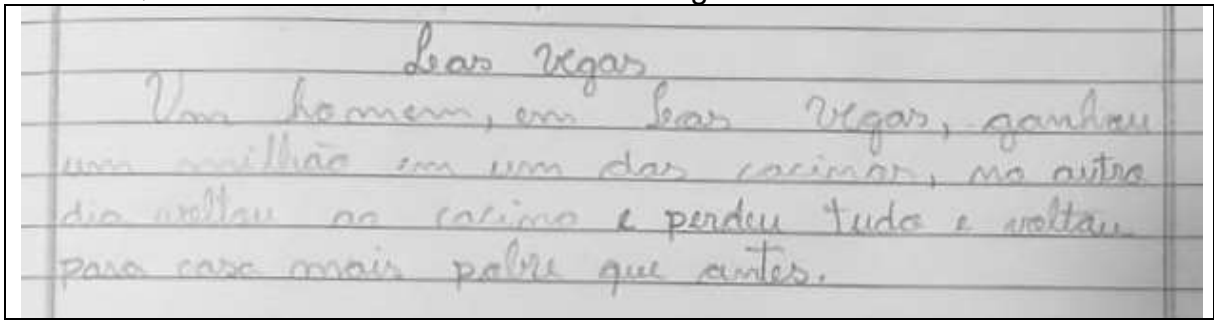 Leas Vegas
Um homem, em Leas Vegas, ganhou
um milhão em um das cacinos, no outro
dia voltou ao cacino e perdeu tudo e voltou
para casa mais pobre que antes.